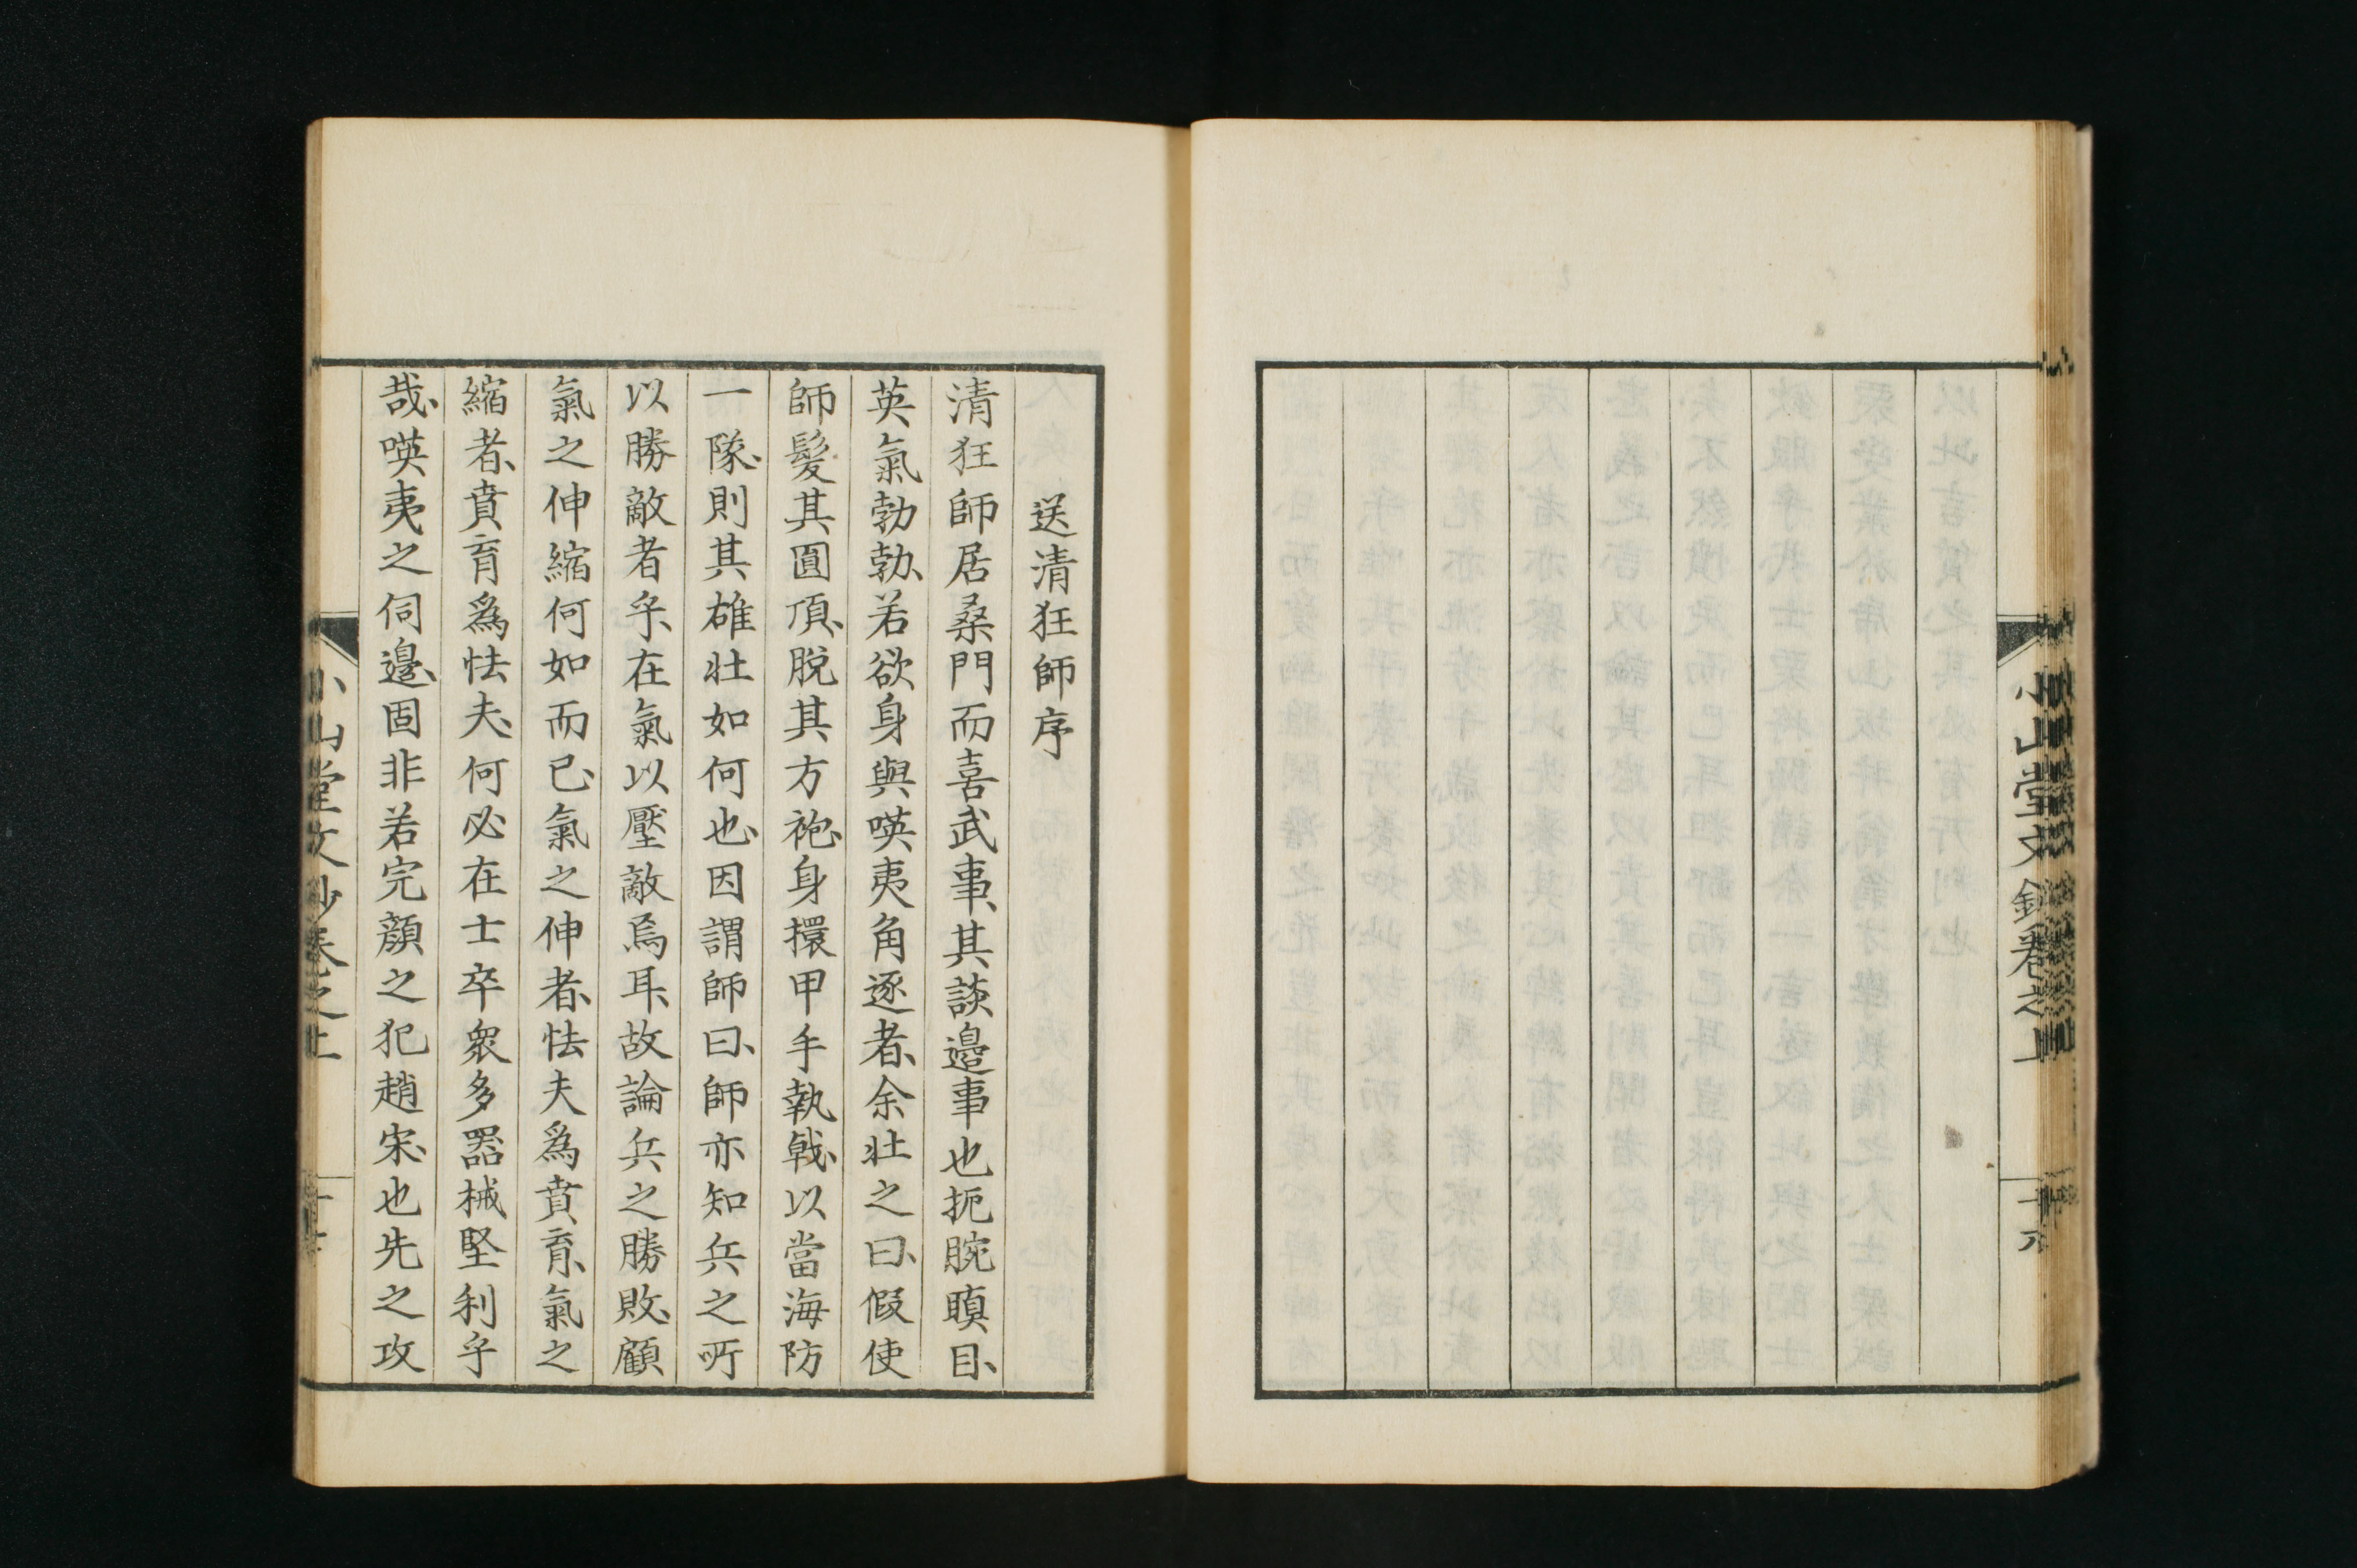 小山堂文鈔卷之上
送清狂師序
清狂師居桑門而喜武事、其談邊事也扼腕瞋目、
英氣勃勃、若欲身與暎夷角逐者、余壯之曰、假使
師髮其圓頂、脫其方袍、身擐甲手執戟、以當海防
一隊、則其雄壯如何也、因謂師曰、師亦知兵之所
以勝敵者乎、在氣以壓敵焉耳、故論兵之勝敗、顧
氣之伸縮何如而已、氣之伸者、怯夫為賁育、氣之
縮者、賁育為怯夫、何必在士卒衆多器械堅利乎
哉、暎夷之伺邊、固非若完顏之犯趙宋、也先之攻
小山堂文鈔卷之上